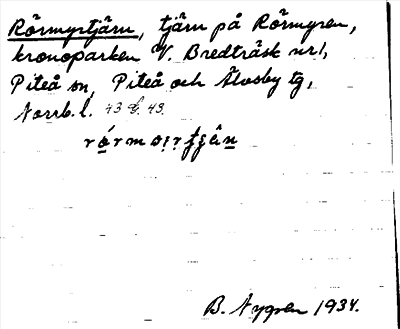 Rörmyrtjärn, tjärn på Rörmyren,
kronoparken V. Bredträsk nr 1,
Piteå sn, Piteå och Älvsby tg,
Norrb. l. 43 49.
B. Nygren 1934.